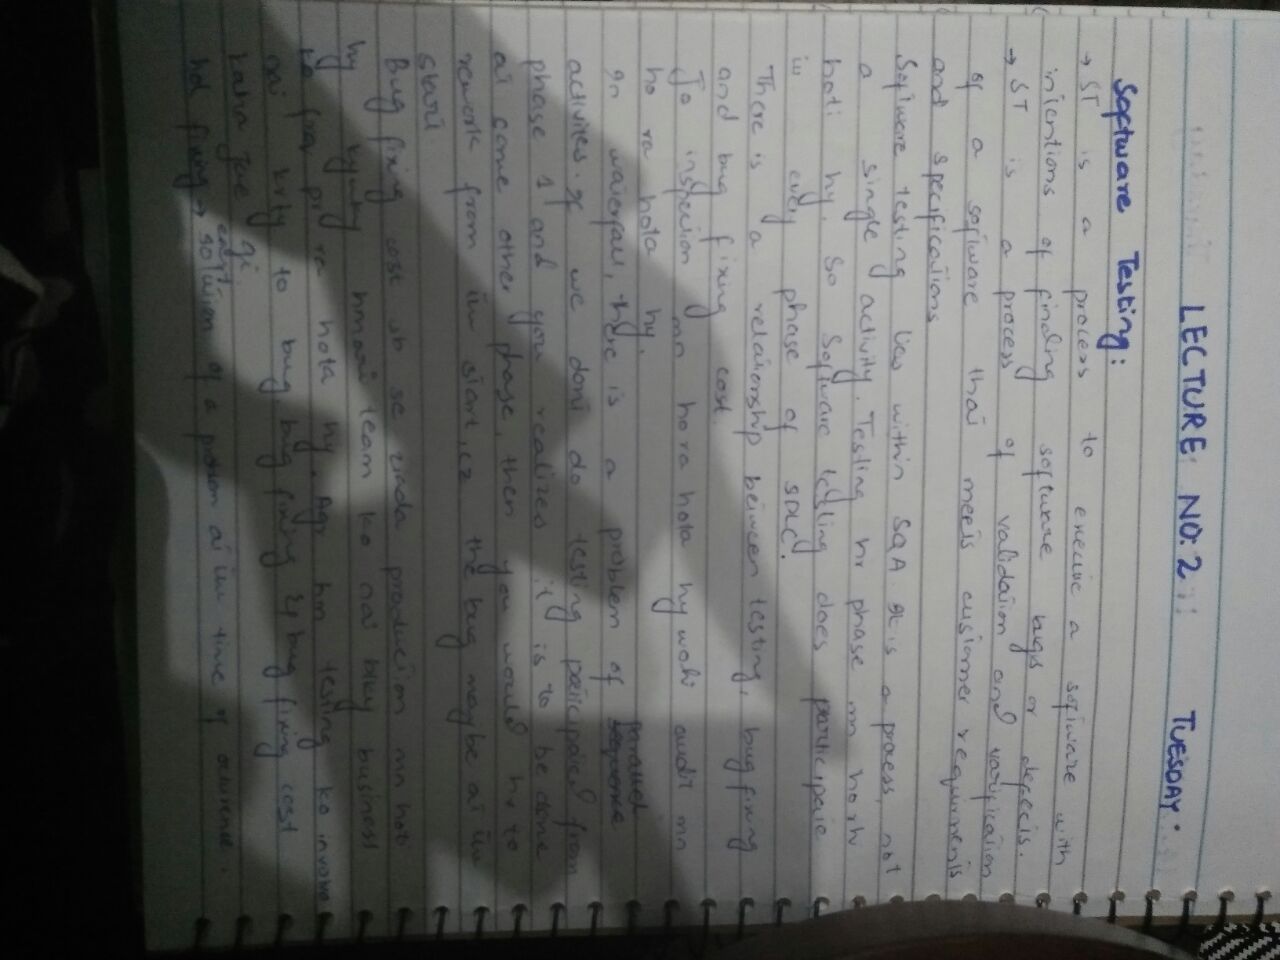 LECTURE NO: 2 TUESDAY:
Software Testing:
→ ST is a process to execute a software with
intentions of finding software bugs or defects.
→ ST is a process of validation and varification
of a software that meets customer requirments
and specifications
Software testing lies within SQA. It is a process, not
a single activity. Testing hr phase mn ho rhi
hoti hy. So Software testing does participate
in every phase of SDLC.
There is a relationship between testing, bug fixing
and bug fixing cost.
Jo inspection mn ho ra hota hy wohi audit mn
ho ra hota hy.
In waterfall, there is a problem of parallel
activites. If we dont do testing participated from
phase 1 and you realizes it is to be done
at some other phase, then you would hv to
rework from the start, cz the bug maybe at the
start
Bug fixing cost sb se ziada production mn hoti
hy kyunky hmari team ko nai blky business
ko farq pr ra hota hy. Agr hm testing ko involve
nai krty to bug, bug fixing & bug fixing cost
hot fixing → solution of a problem at the time of